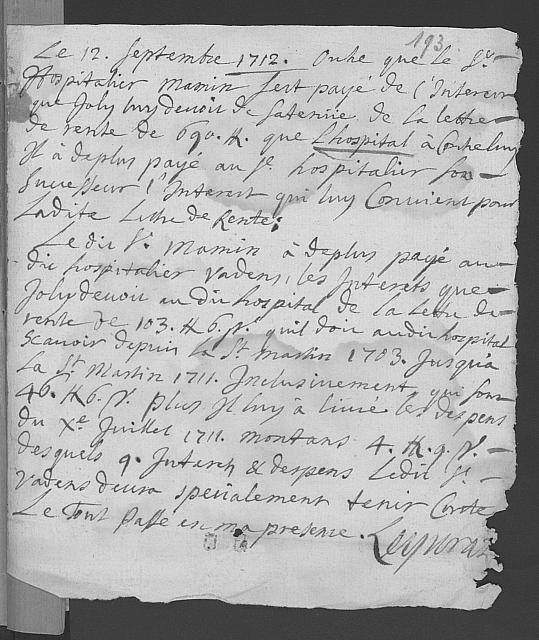 193
Le 12. Septembre 1712. Outre que le Sr.
Hospitalier Mamin s'est payé de l'Interest
que Joly luy devoit de Saterme de la lettre
de rente de 690. ₶. que Lhospital à
Il à deplus payé au Sr. hospitalier son
Successeur l'Interest qui luy Convient pour
Ladite Lettre de Rente;
Le dit Sr. Mamin à deplus payé au
dit hospitalier Vadens, les Interets que
Joly devoit au dit hospital de la Lettre de
rente de 103. ₶ 6. s. qu'il doit audit hospital
Scavoir depuis la St. Martin 1703. Jusqu'à
La St. Martin 1711. Inclusivement, qui sont
46. ₶ 6. s. plus Il luy à livré les despens
du Xe. Juillet 1711. montans 4. ₶. 9. s.
desquels 9. Interets & despens Ledit Sr.
Vadens devra specialement tenir Conte
Le Tout Passé en ma presence.